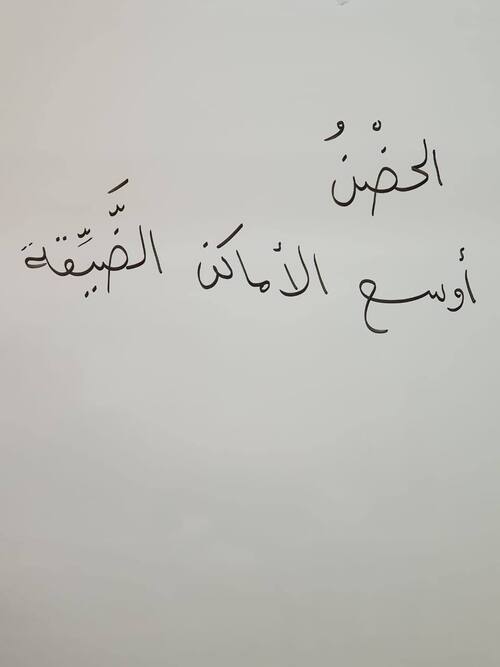 الحضْنُ
أوسع الأماكن الضَّيِّقة